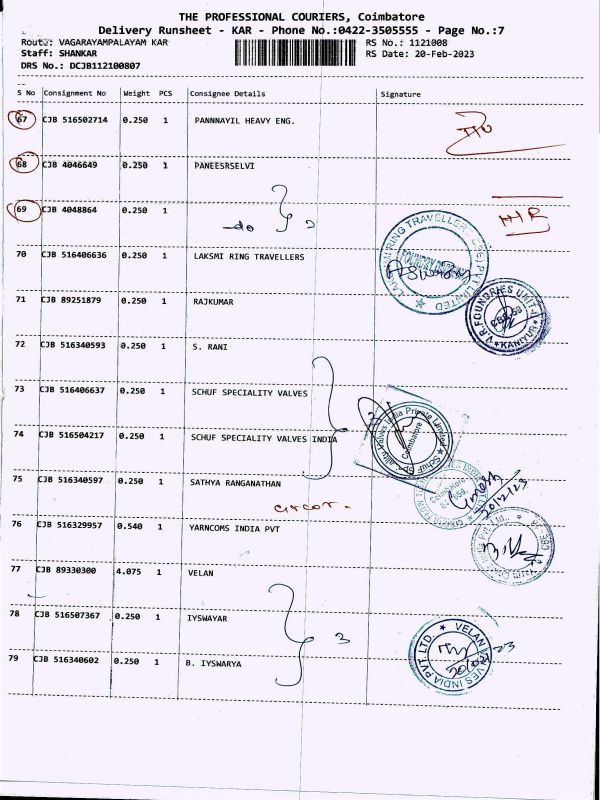 THE PROFESSIONAL COURIERS, Coimbatore
Delivery Runsheet - KAR - Phone No.:0422-3505555 - Page No.:7
Route: VAGARAYAMPALAYAM KAR
RS No.: 1121008
Staff: SHANKAR
RS Date: 20-Feb-2023
DRS No.: DCJB112100807
S No Consignment No Weight PCS Consignee Details Signature
67 CJB 516502714 0.250 1 PANNNAYIL HEAVY ENG.
68 CJB 4046649 0.250 1 PANEESRSELVI
69 CJB 4048864 0.250 1
-do 2
70 CJB 516406636 0.250 1 LAKSMI RING TRAVELLERS
71 CJB 89251879 0.250 1 RAJKUMAR
V.R. FOUNDRIES UNIT-II
KANIYUR
72 CJB 516340593 0.250 1 S. RANI
73 CJB 516406637 0.250 1 SCHUF SPECIALITY VALVES
74 CJB 516504217 0.250 1 SCHUF SPECIALITY VALVES INDIA
Valves India Private Limited
Coimbatore
75 CJB 516340597 0.250 1 SATHYA RANGANATHAN
20/2/23
76 CJB 516329957 0.540 1 YARNCOMS INDIA PVT
77 CJB 89330300 4.075 1 VELAN
78 CJB 516507367 0.250 1 IYSWAYAR
3
VELAN VALVES INDIA PVT. LTD.
79 CJB 516340602 0.250 1 B. IYSWARYA